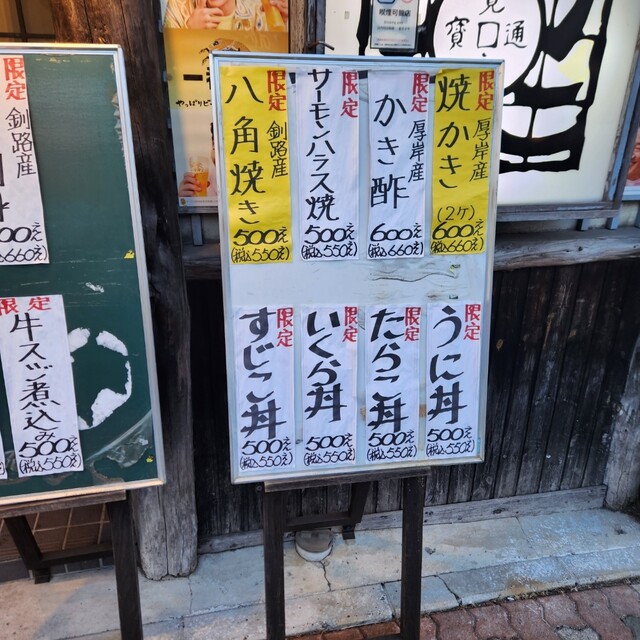 限定
釧路産
00えん
込660え)
限定
牛スジ煮込み
500え
(税込550え)
やっぱりビ
喫煙可能店
覚
寳口通
限定
釧路産
八角焼き
500え
(税込550え)
限定
サーモンハラス焼
500え
(税込550え)
限定
厚岸産
かき酢
600え
(税込660え)
限定
厚岸産
焼かき
(2ケ)
600え
(税込660え)
限定
すじこ丼
500え
(税込550え)
限定
いくら丼
500え
(税込550え)
限定
たらこ丼
500え
(税込550え)
限定
うに丼
500え
(税込550え)